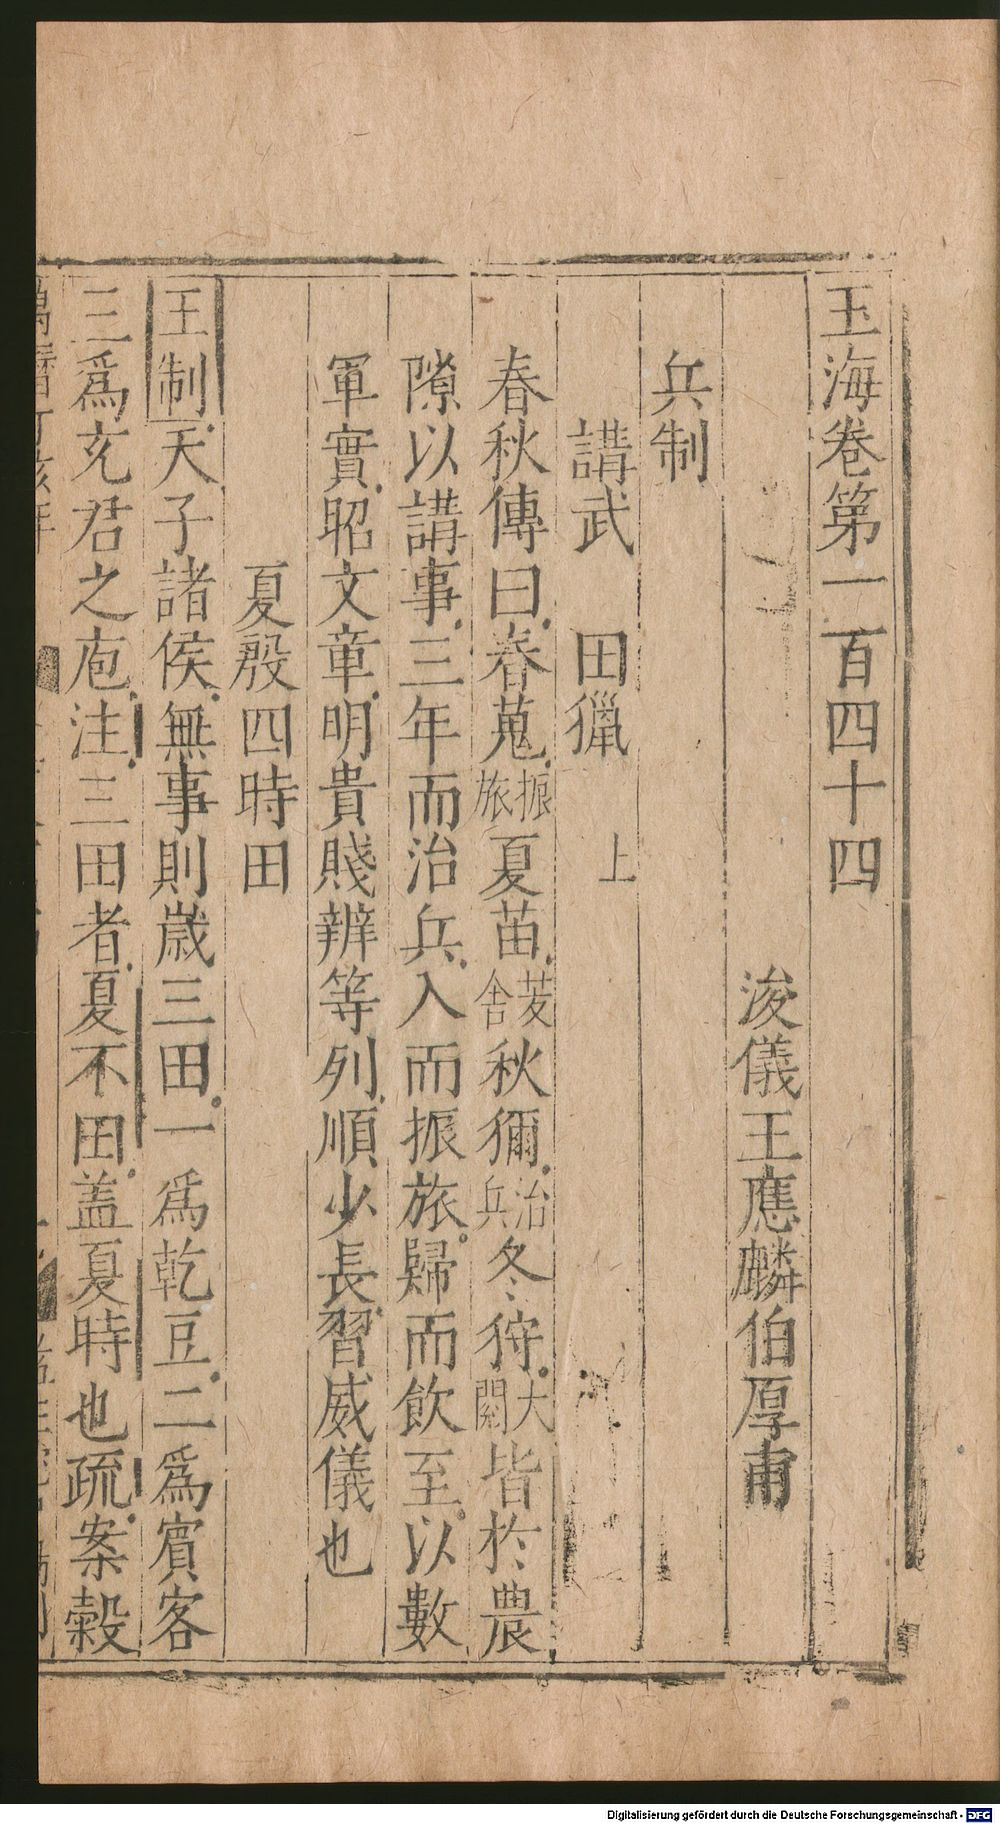 玉海卷第一百四十四
浚儀王應麟伯厚甫
兵制
講武　田獵　上
春秋傳曰春蒐振旅夏苗茇舍秋獮治兵冬狩大閱皆於農
隙以講事三年而治兵入而振旅歸而飲至以數
軍實昭文章明貴賤辨等列順少長習威儀也
夏殷四時田
王制天子諸侯無事則歲三田一爲乾豆二爲賓客
三爲充君之庖注三田者夏不田蓋夏時也疏案穀
Digitalisierung gefördert durch die Deutsche Forschungsgemeinschaft - DFG